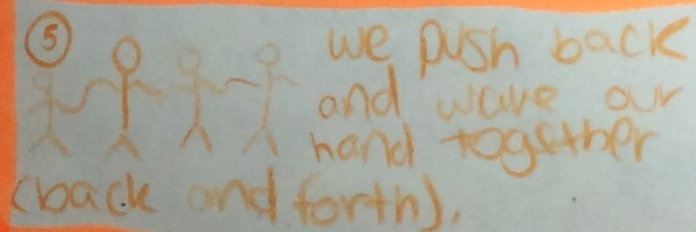 5
we push back
and wave our
hand together
(back and forth).